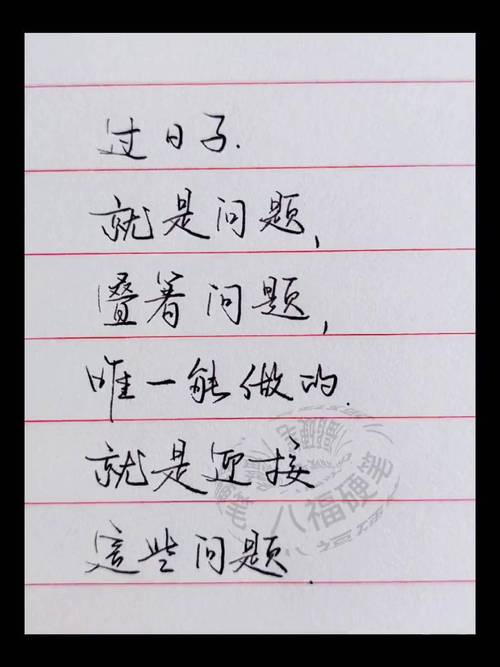 过日子.
就是问题,
叠着问题,
唯一能做的.
就是迎接
这些问题.
八福硬笔